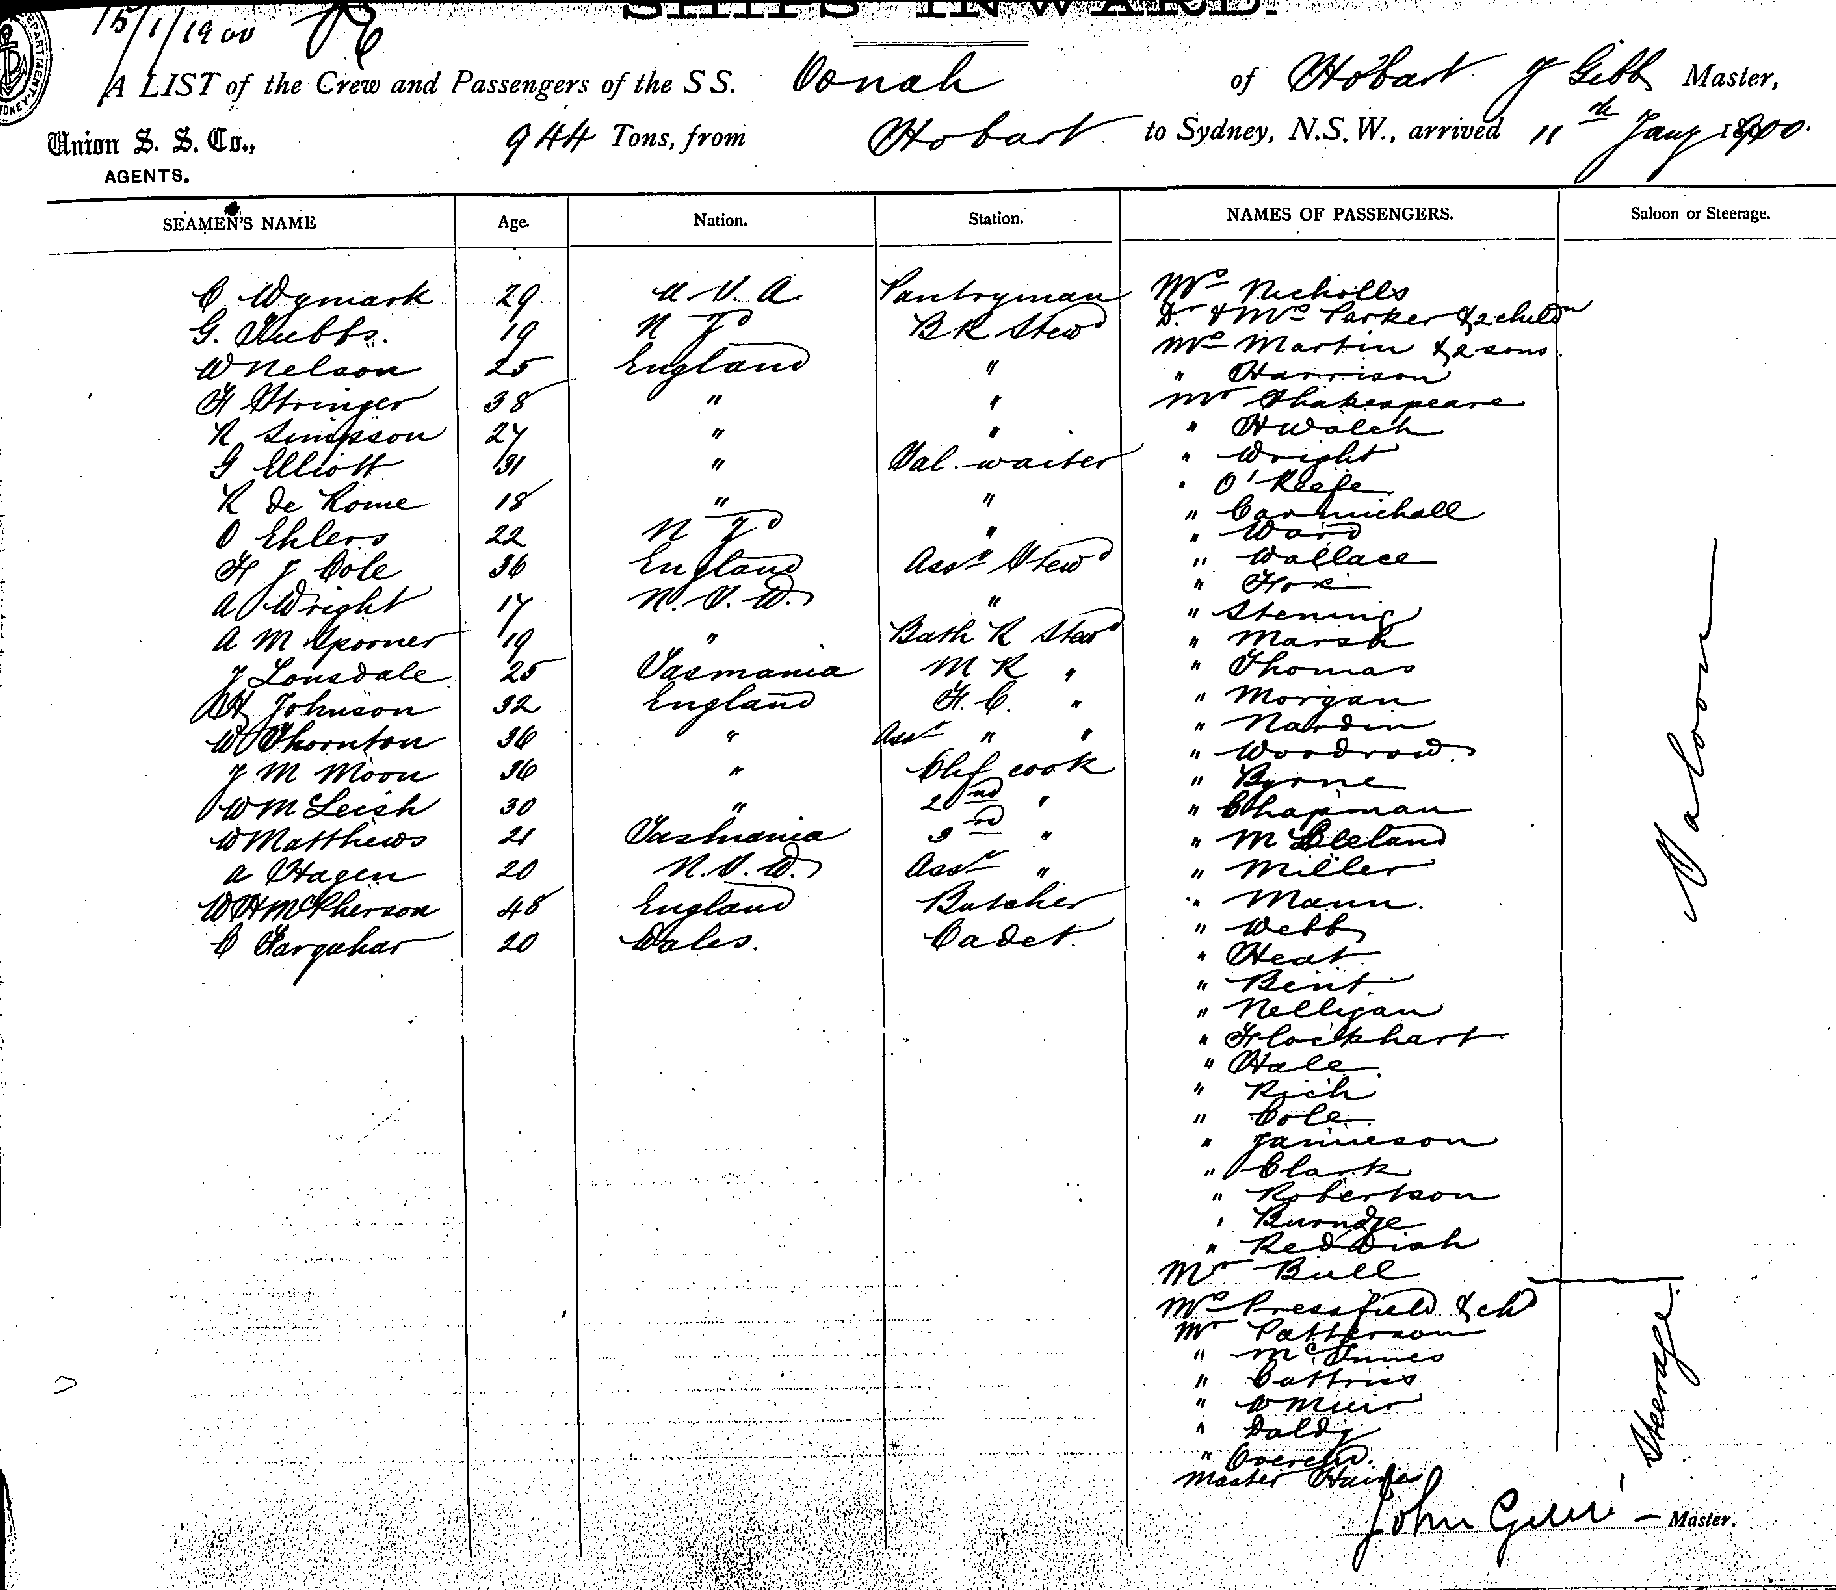 15/1/1900
SHIPS INWARD.
A LIST of the Crew and Passengers of the S S. Oonah of Hobart J Gibb Master,
Union S. S. Co., 944 Tons, from Hobart to Sydney, N.S.W., arrived 11th Jany 1900.
AGENTS.
SEAMEN'S NAME Age. Nation. Station. NAMES OF PASSENGERS. Saloon or Steerage.
C Wymark 29 U. S. A Pantryman Mrs Nicholls
G. Stubbs. 19 N Zd B R Stewd Dr & Mrs Parker & 2 childn
W Nelson 25 England " Mrs Martin & 2 sons
" Harrison
H Stringer 38 " " Mr Shakespeare
R Simpson 27 " " " H Walch
G Elliott 31 " Sal. waiter " Wright
" O'Keefe
R de Rome 18 " " " Carmichall
O Ehlers 22 N Zd " " Ward
H J Cole 36 England Asst Stewd " Wallace
" Fox
A Wright 17 N. S. W. " " Stening
A M Spooner 19 " Bath R Stewd " Marsh
J Lonsdale 25 Tasmania M R " " Thomas
H Johnson 32 England F. C. " " Morgan
" Nardin
W Thornton 36 " Asst " " " Woodrow
J M Moon 36 " Chf cook " Byrne
W McLeish 30 " 2nd " " Chapman
W Matthews 21 Tasmania 3rd " " McCleland
A Hagen 20 N. S. W. Asst " " Miller
W H McPherson 48 England Butcher " Mann.
" Webb
C Farquhar 20 Wales. Cadet. " Heat
" Bent
" Nelligan
" Flockhart
" Hale
" Rich
" Cole
" Jamieson
" Clark
" Robertson
" Burndge
" Reddish
Mr Bull
Saloon
Mrs Pressfield & ch
Mr Patterson
" McInnes
" Cattriss
" W Muir
" Daldy
"
Master
Steerage
John Gibb — Master.